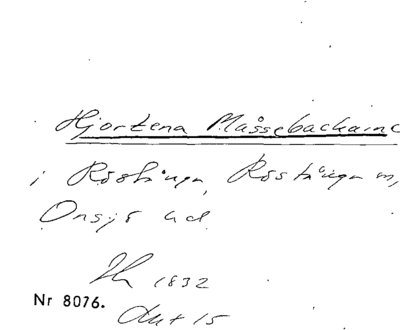 Hjortena Måssebackarne
i Röstånga, Röstånga sn,
Onsjö hd
1832
Nr 8076.
Akt 15